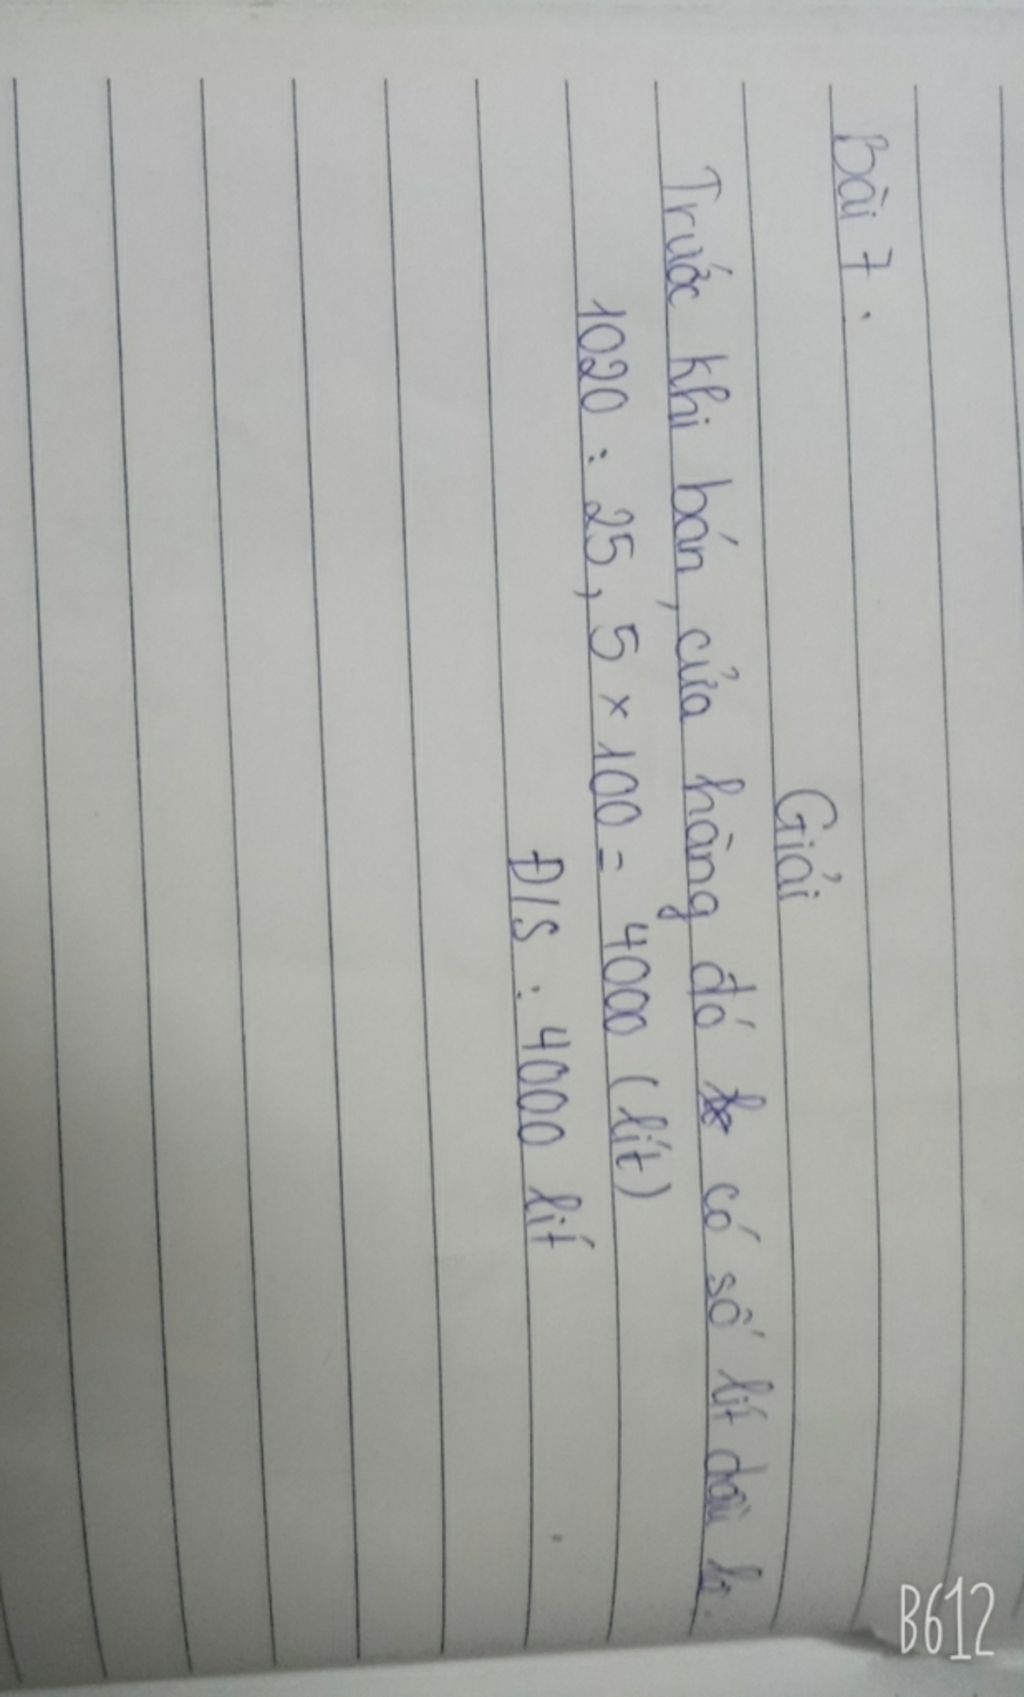 Bài 7.
Giải
Trước khi bán, cửa hàng đó có số lít dầu là
1020 : 25,5 × 100 = 4000 (lít)
Đ/S : 4000 lít
B612